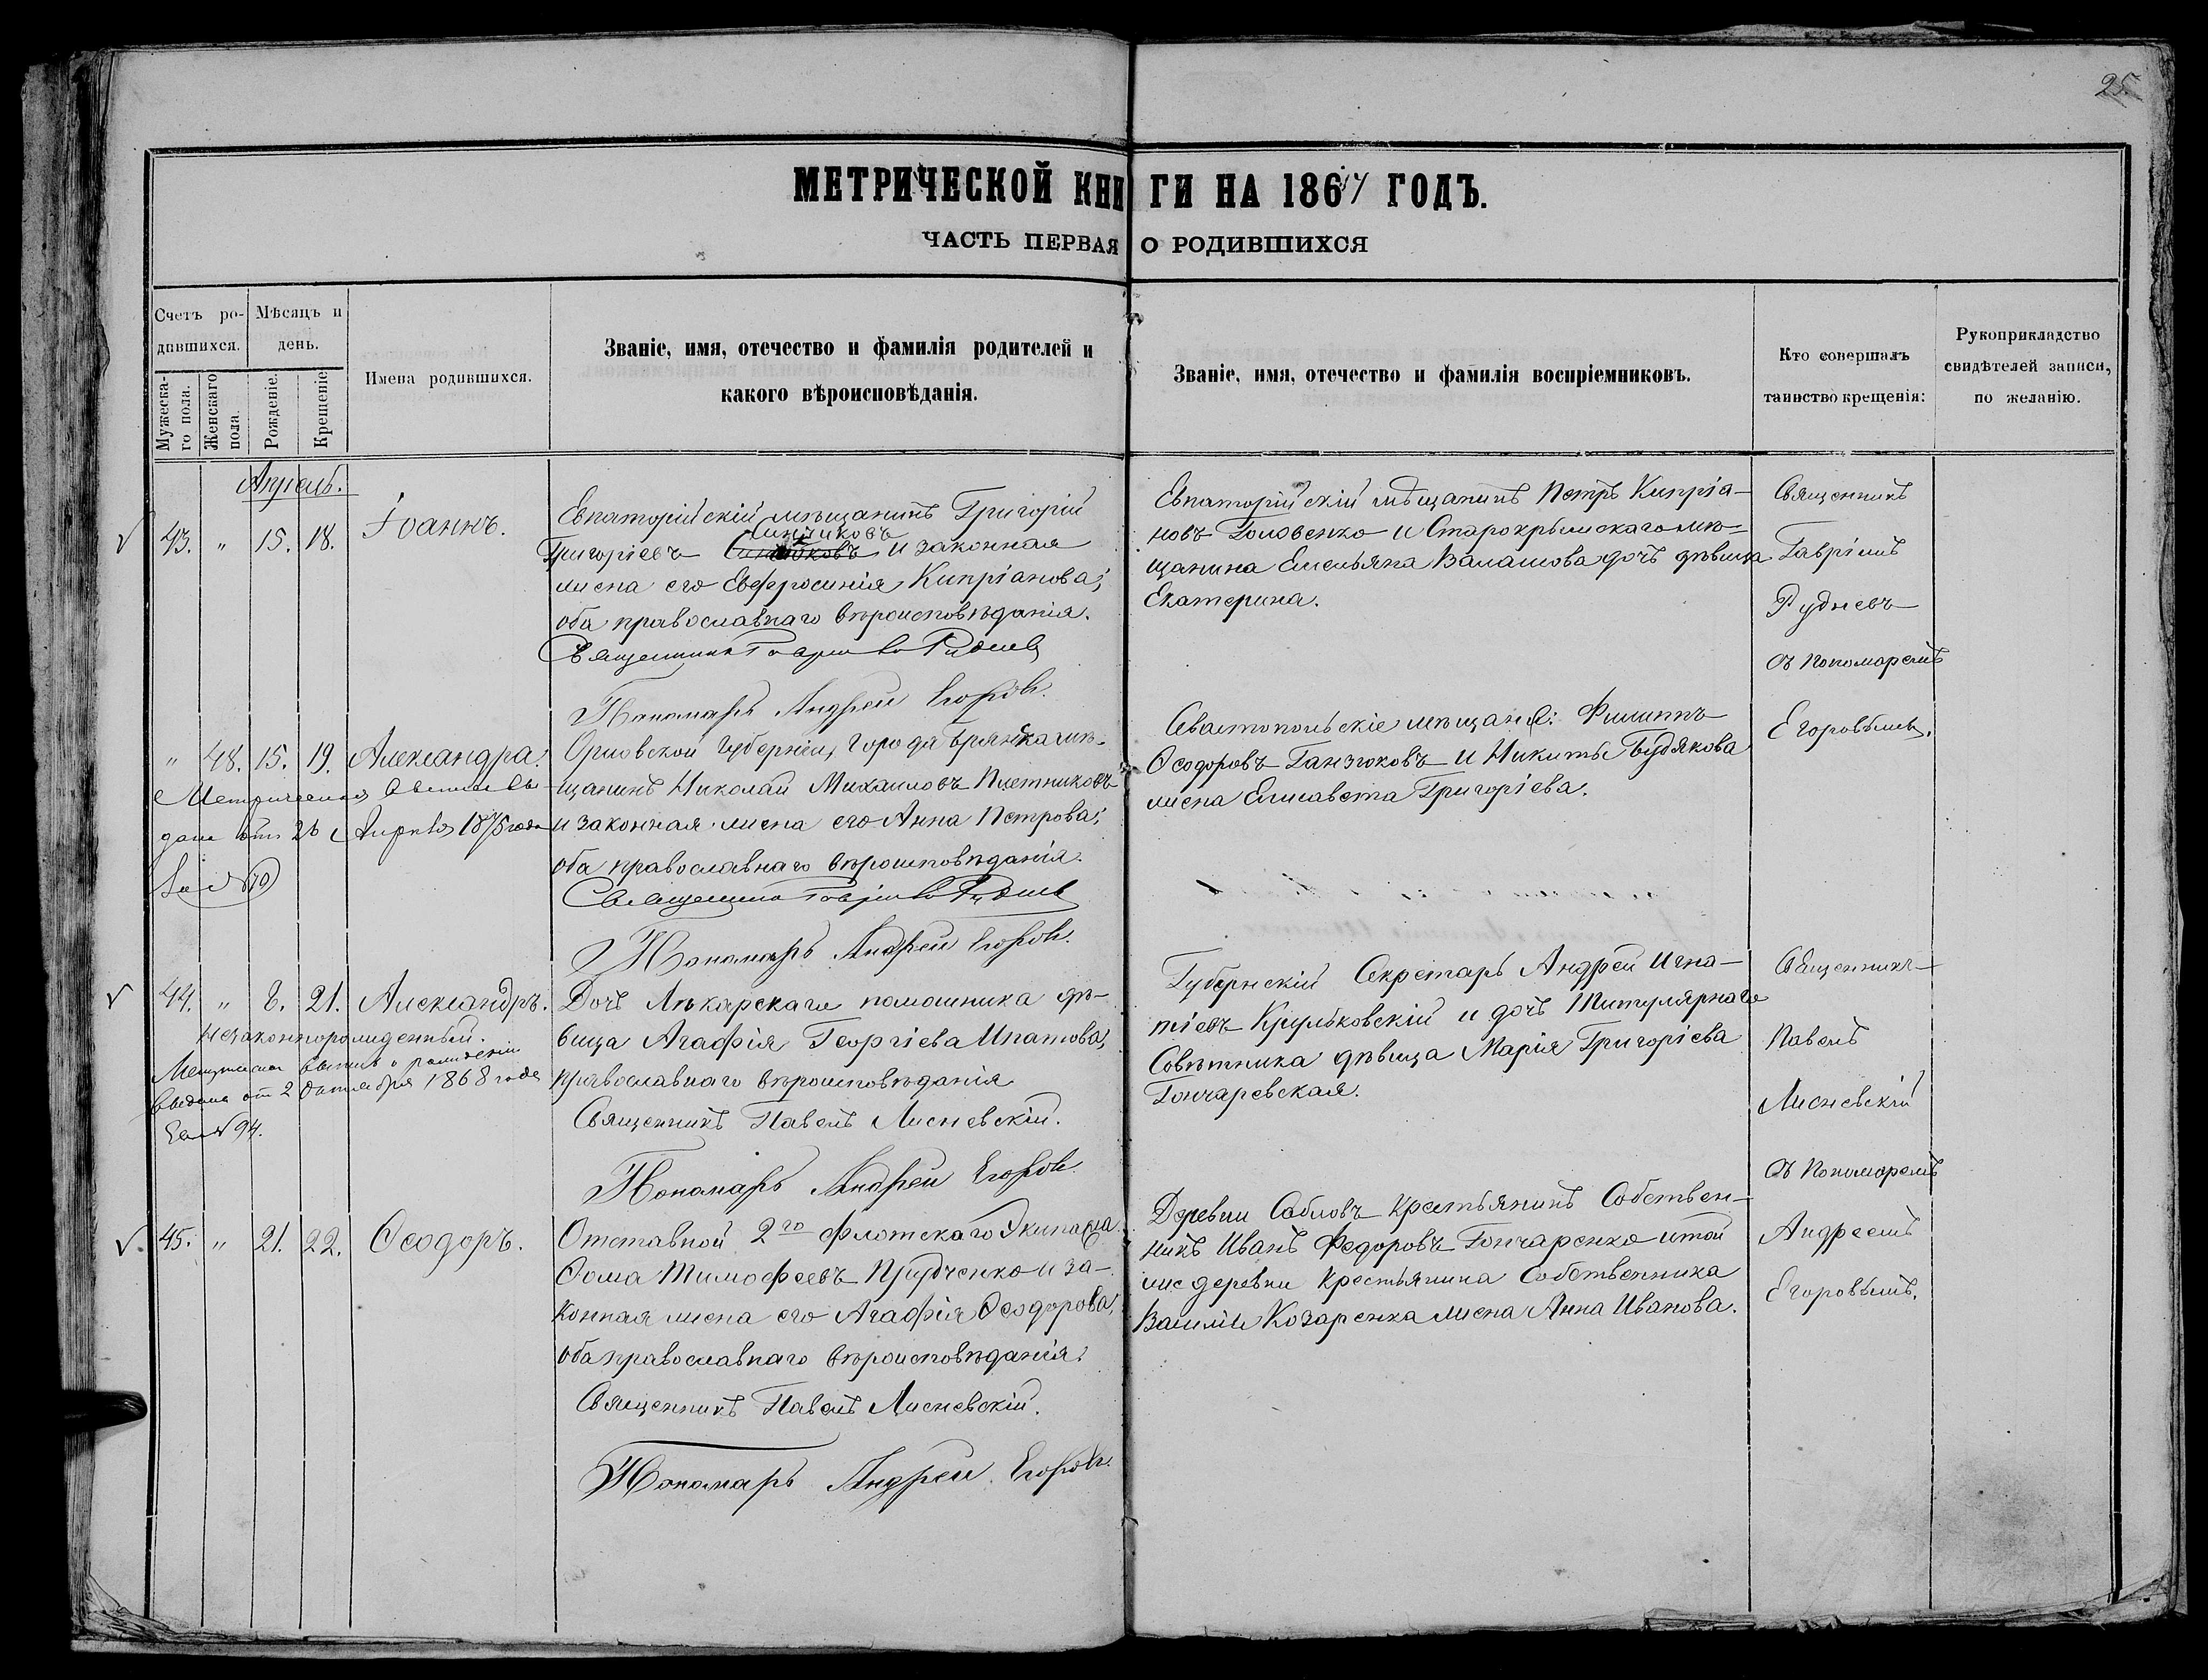 25.
МЕТРИЧЕСКОЙ КНИГИ НА 1867 ГОДЪ.
ЧАСТЬ ПЕРВАЯ О РОДИВШИХСЯ
Счетъ ро-
дившихся.
Мѣсяцъ и
день.
Мужеска-
го пола.
Женскаго
пола.
Рожденіе.
Крещеніе
Имена родившихся.
Званіе, имя, отечество и фамилія родителей и
какого вѣроисповѣданія.
Званіе, имя, отечество и фамилія воспріемниковъ.
Кто совершалъ
таинство крещенія:
Рукоприкладство
свидѣтелей записи,
по желанію.
Апрель.
43. " 15. 18. Іоаннъ.
Евпаторійскій мѣщанинъ Григорій
Григорьевъ и законная
жена его Евфросинія Кипріанова;
оба православнаго вѣроисповѣданія.
Священникъ Гавріилъ Рудневъ
Пономарь Андрей Егоровъ.
Евпаторійскій мѣщанинъ Петръ Кипріа-
новъ Головенко и Старокрымскаго мѣ-
щанина Емельяна Валашова дочь дѣвица
Екатерина.
Священникъ
Гавріилъ
Рудневъ
съ Пономаремъ
Егоровымъ.
" 48. 15. 19. Александра.
Метрическое
дано отъ 26 Апреля 1875 года
за № 70
Орловской губерніи, города Брянска мѣ-
щанинъ Николай Михаиловъ Плетниковъ
и законная жена его Анна Петрова;
оба православнаго вѣроисповѣданія.
Священникъ Гавріилъ Рудневъ
Пономарь Андрей Егоровъ.
Севастопольскіе мѣщане: Филиппъ
Ѳеодоровъ Ганзюковъ и Никиты Будякова
жена Елисавета Григоріева.
44. " 8. 21. Александръ.
незаконнорожденный.
Метрическая выпись о рожденіи
выдана от 2 Октября 1868 года
за № 94.
Дочь Лѣкарскаго помошника дѣ-
вица Агафія Георгіева Ипатова,
православнаго вѣроисповѣданія
Священникъ Павелъ Лисневскій.
Пономарь Андрей Егоровъ
Губернскій Секретарь Андрей Игна-
тіевъ Крульковскій и дочь Титулярнаго
Совѣтника дѣвица Марія Григоріева
Гончаревская.
Священникъ
Павелъ
Лисневскій
съ Пономаремъ
Андреемъ
Егоровымъ.
45. " 21. 22. Ѳеодоръ.
Отставной 2го флотскаго Экипажа
Ѳома Тимофеевъ Прудченко и за-
конная жена его Агафія Ѳеодорова,
оба православнаго вѣроисповѣданія.
Священникъ Павелъ Лисневскій.
Пономарь Андрей Егоровъ.
Деревни Сабловъ крестьянинъ Собствен-
никъ Иванъ Федоровъ Гончаренко и той
же деревни крестьянина Собственника
Василія Козаренка жена Анна Иванова.